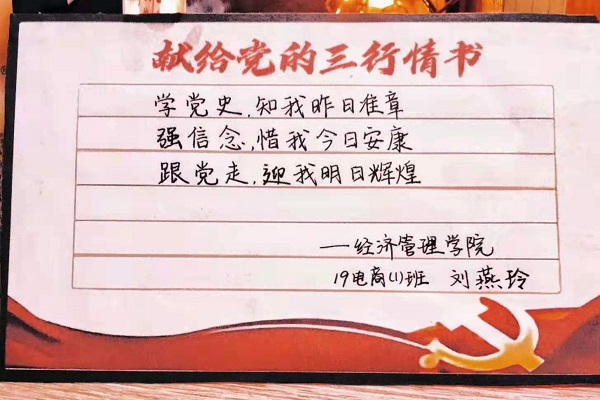 献给党的三行情书
学党史,知我昨日准章
强信念,惜我今日安康
跟党走,迎我明日辉煌
——经济管理学院
19电商(1)班 刘燕玲